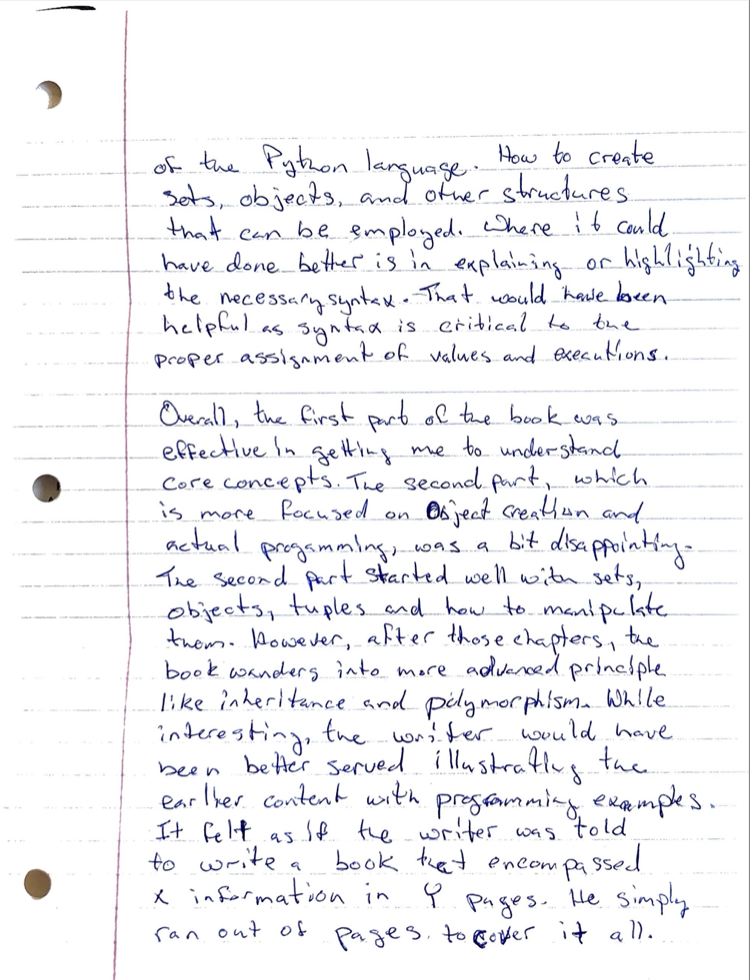 of the Python language. How to create
sets, objects, and other structures
that can be employed. Where it could
have done better is in explaining or highlighting
the necessary syntax. That would have been
helpful as syntax is critical to the
proper assignment of values and executions.
Overall, the first part of the book was
effective in getting me to understand
core concepts. The second part, which
is more focused on Object creation and
actual progamming, was a bit disappointing.
The second part started well with sets,
objects, tuples and how to manipulate
them. However, after those chapters, the
book wanders into more advanced principle
like inheritance and polymorphism. While
interesting, the writer would have
been better served illustrating the
earlier content with programming examples.
It felt as if the writer was told
to write a book that encompassed
X information in Y pages. He simply
ran out of pages to cover it all.